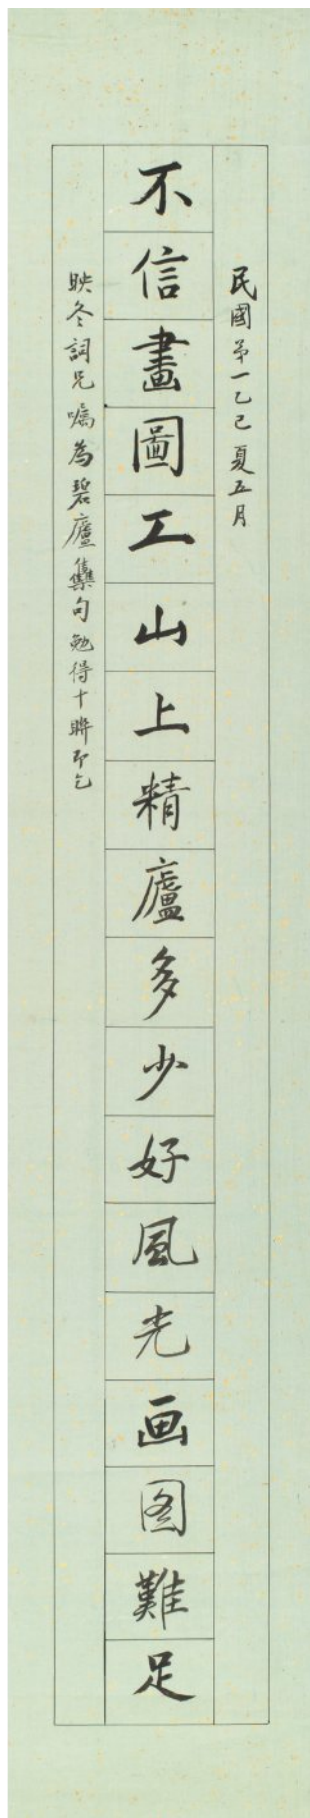 民國第一乙巳夏五月
不信畫圖工山上精廬多少好風光画图難足
映冬詞兄囑為碧廬集句勉得十聯即乞